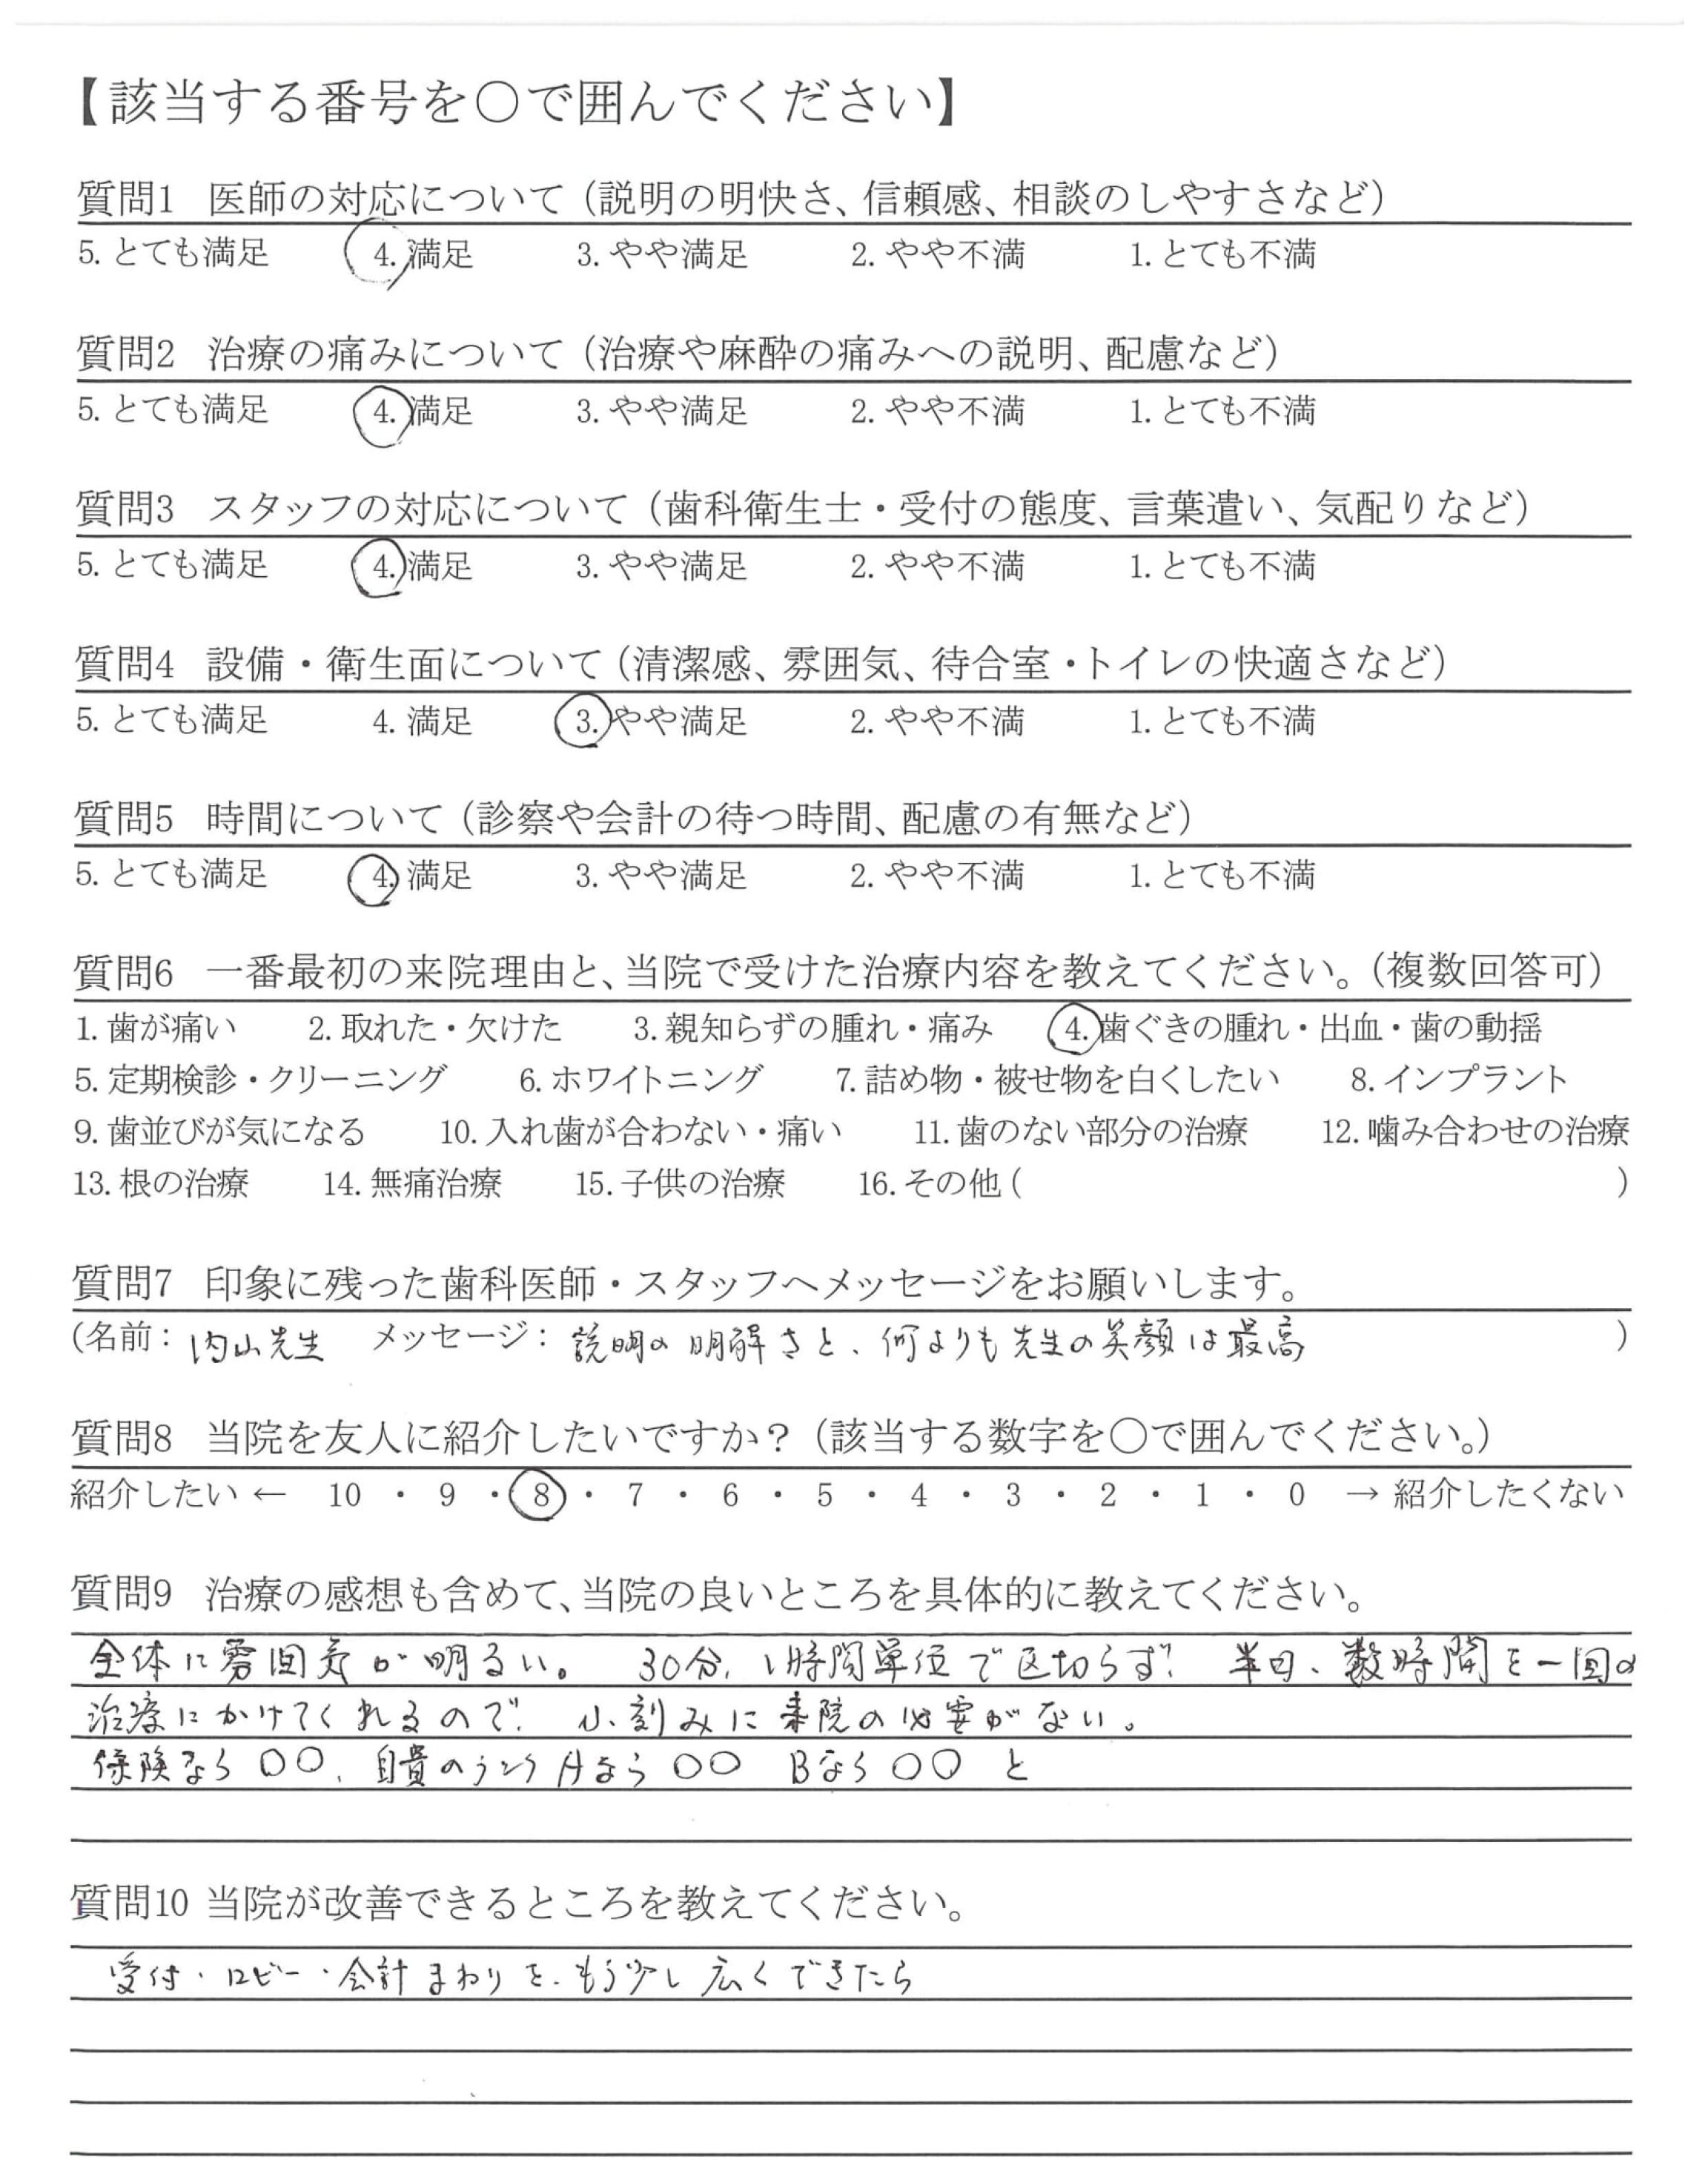 【該当する番号を〇で囲んでください】
質問1 医師の対応について（説明の明快さ、信頼感、相談のしやすさなど）
5. とても満足 4. 満足 3. やや満足 2. やや不満 1. とても不満
質問2 治療の痛みについて（治療や麻酔の痛みへの説明、配慮など）
5. とても満足 4. 満足 3. やや満足 2. やや不満 1. とても不満
質問3 スタッフの対応について（歯科衛生士・受付の態度、言葉遣い、気配りなど）
5. とても満足 4. 満足 3. やや満足 2. やや不満 1. とても不満
質問4 設備・衛生面について（清潔感、雰囲気、待合室・トイレの快適さなど）
5. とても満足 4. 満足 3. やや満足 2. やや不満 1. とても不満
質問5 時間について（診察や会計の待つ時間、配慮の有無など）
5. とても満足 4. 満足 3. やや満足 2. やや不満 1. とても不満
質問6 一番最初の来院理由と、当院で受けた治療内容を教えてください。（複数回答可）
1. 歯が痛い 2. 取れた・欠けた 3. 親知らずの腫れ・痛み 4. 歯ぐきの腫れ・出血・歯の動揺
5. 定期検診・クリーニング 6. ホワイトニング 7. 詰め物・被せ物を白くしたい 8. インプラント
9. 歯並びが気になる 10. 入れ歯が合わない・痛い 11. 歯のない部分の治療 12. 噛み合わせの治療
13. 根の治療 14. 無痛治療 15. 子供の治療 16. その他（ ）
質問7 印象に残った歯科医師・スタッフへメッセージをお願いします。
（名前：内山先生 メッセージ：説明の明解さと、何よりも先生の笑顔は最高 ）
質問8 当院を友人に紹介したいですか？（該当する数字を〇で囲んでください。）
紹介したい ← 10 ・ 9 ・ 8 ・ 7 ・ 6 ・ 5 ・ 4 ・ 3 ・ 2 ・ 1 ・ 0 → 紹介したくない
質問9 治療の感想も含めて、当院の良いところを具体的に教えてください。
全体に雰囲気が明るい。 30分、1時間単位で区切らず、半日、数時間を一回の
治療にかけてくれるので、小刻みに来院の必要がない。
保険なら〇〇、自費のランクAなら〇〇 Bなら〇〇 と
質問10 当院が改善できるところを教えてください。
受付・ロビー・会計まわりを、もう少し広くできたら